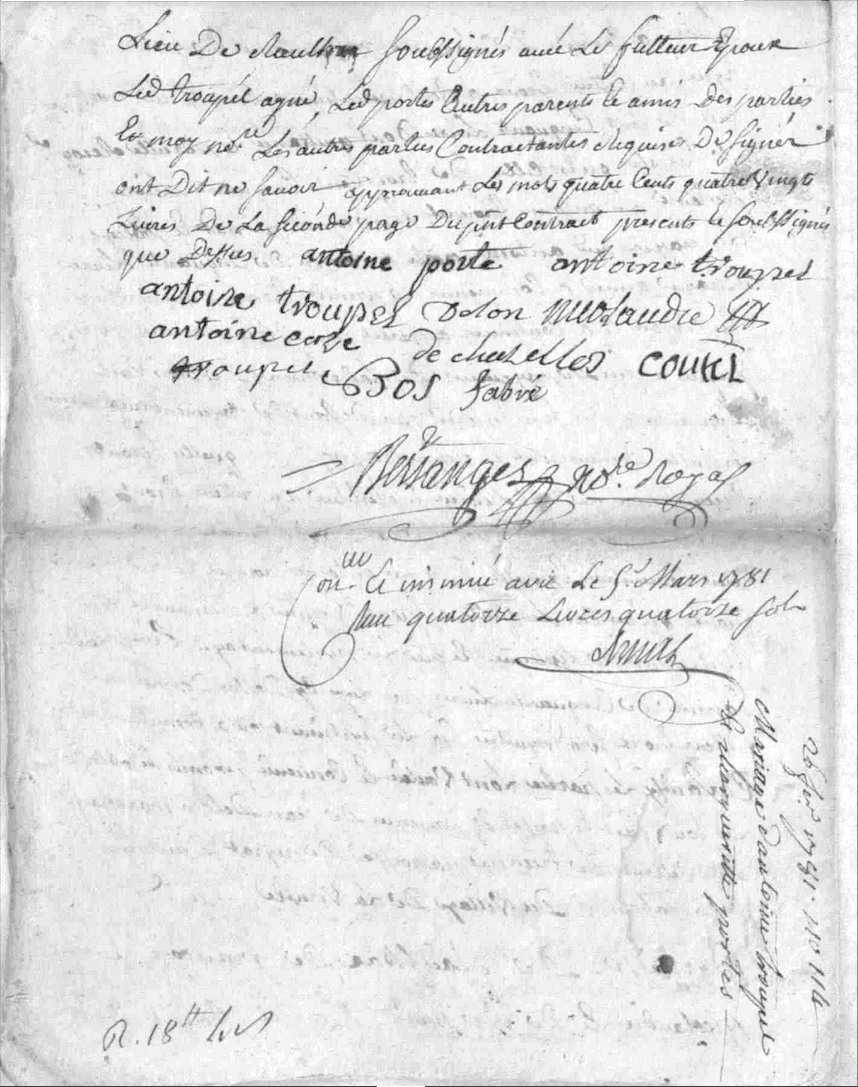 Lieu De soubssignés avec Le futteur Epoux
Led troupél agné, Led portes & autres parents & amis Des parties
Et moy no.re Les autres parties Contractantes Requises De signér
ont Dit ne savoir approuvant Les mots quatre Cents quatre Vingts
Livres De La séconde page Du pnt Contract presents Le soubssignés
que Dessus antoine porte antoine troupel
antoine troupel Dolon
antoine de chazelles
troupel Bos fabre
Bessanges no.re Royal
Con.lle & insinué avec Le 5.e Mars 1781
quatorze Livres quatorze sols
26 fev.r 1781. N.o 114
Mariage d'antoine troupel
& Margueritte portes
R. 18.tt